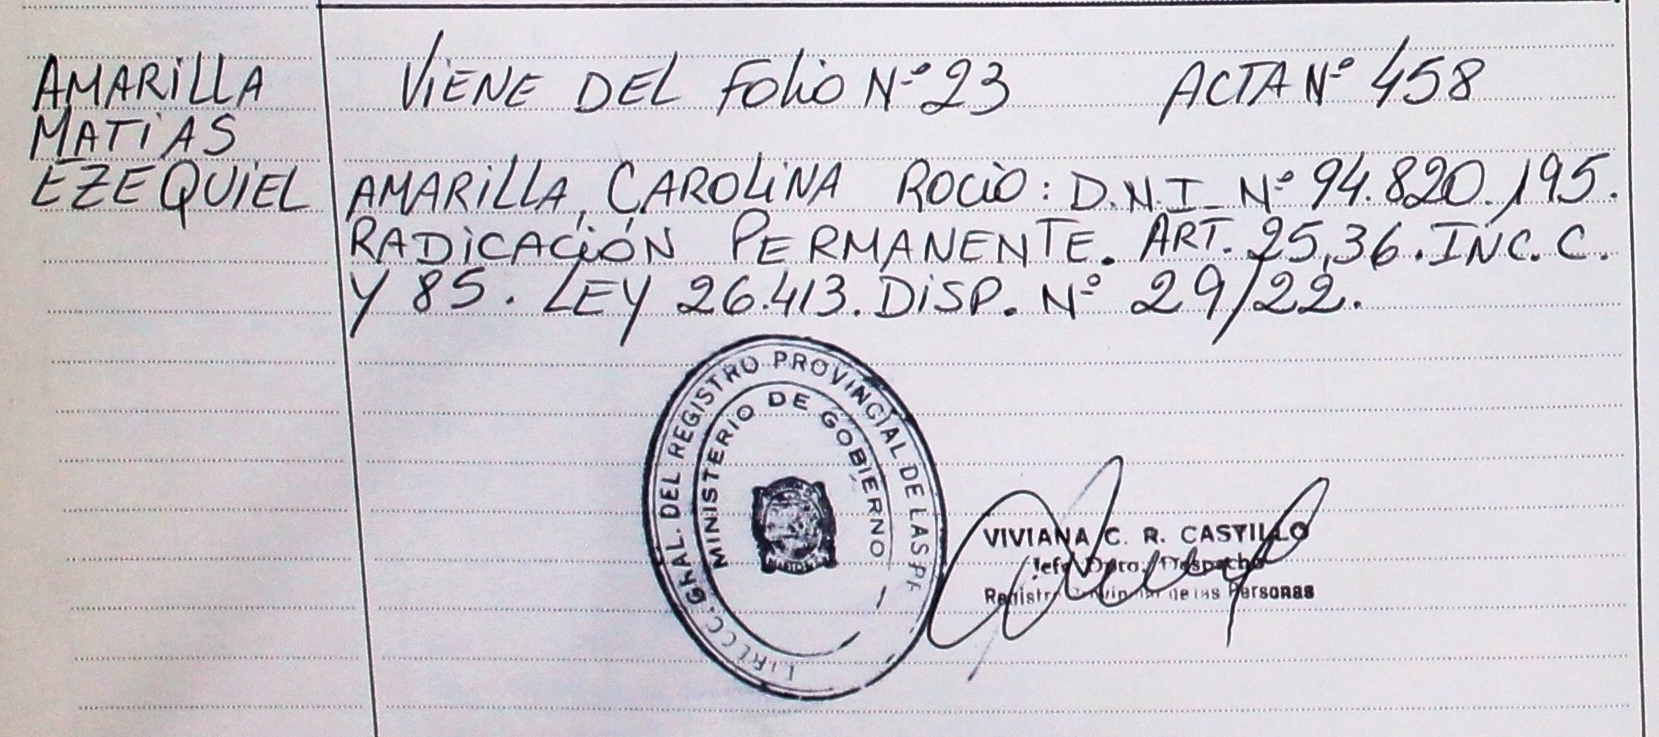 AMARiLLA
MATiAS
EZEQUiEL
ViENE DEL Folio Nº 23 ACTA Nº 458
AMARiLLA, CAROLiNA ROCiO: D.N.I_ Nº 94.820.195.
RADiCACiÓN PERMANENTE. ART. 25,36. INC. C.
Y 85. LEY 26.413. DiSP. Nº 29/22.
GRAL. DEL REGISTRO PROVINCIAL DE LAS
MINISTERIO DE GOBIERNO
VIVIANA C. R. CASTILLO
Jefe Dpto. Despacho
Registro Provincial de las Personas